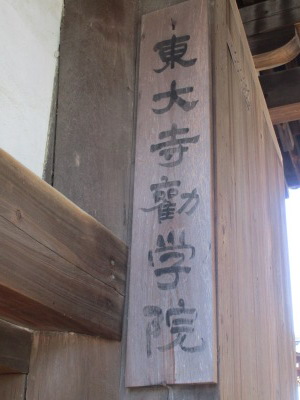 東大寺勸学院